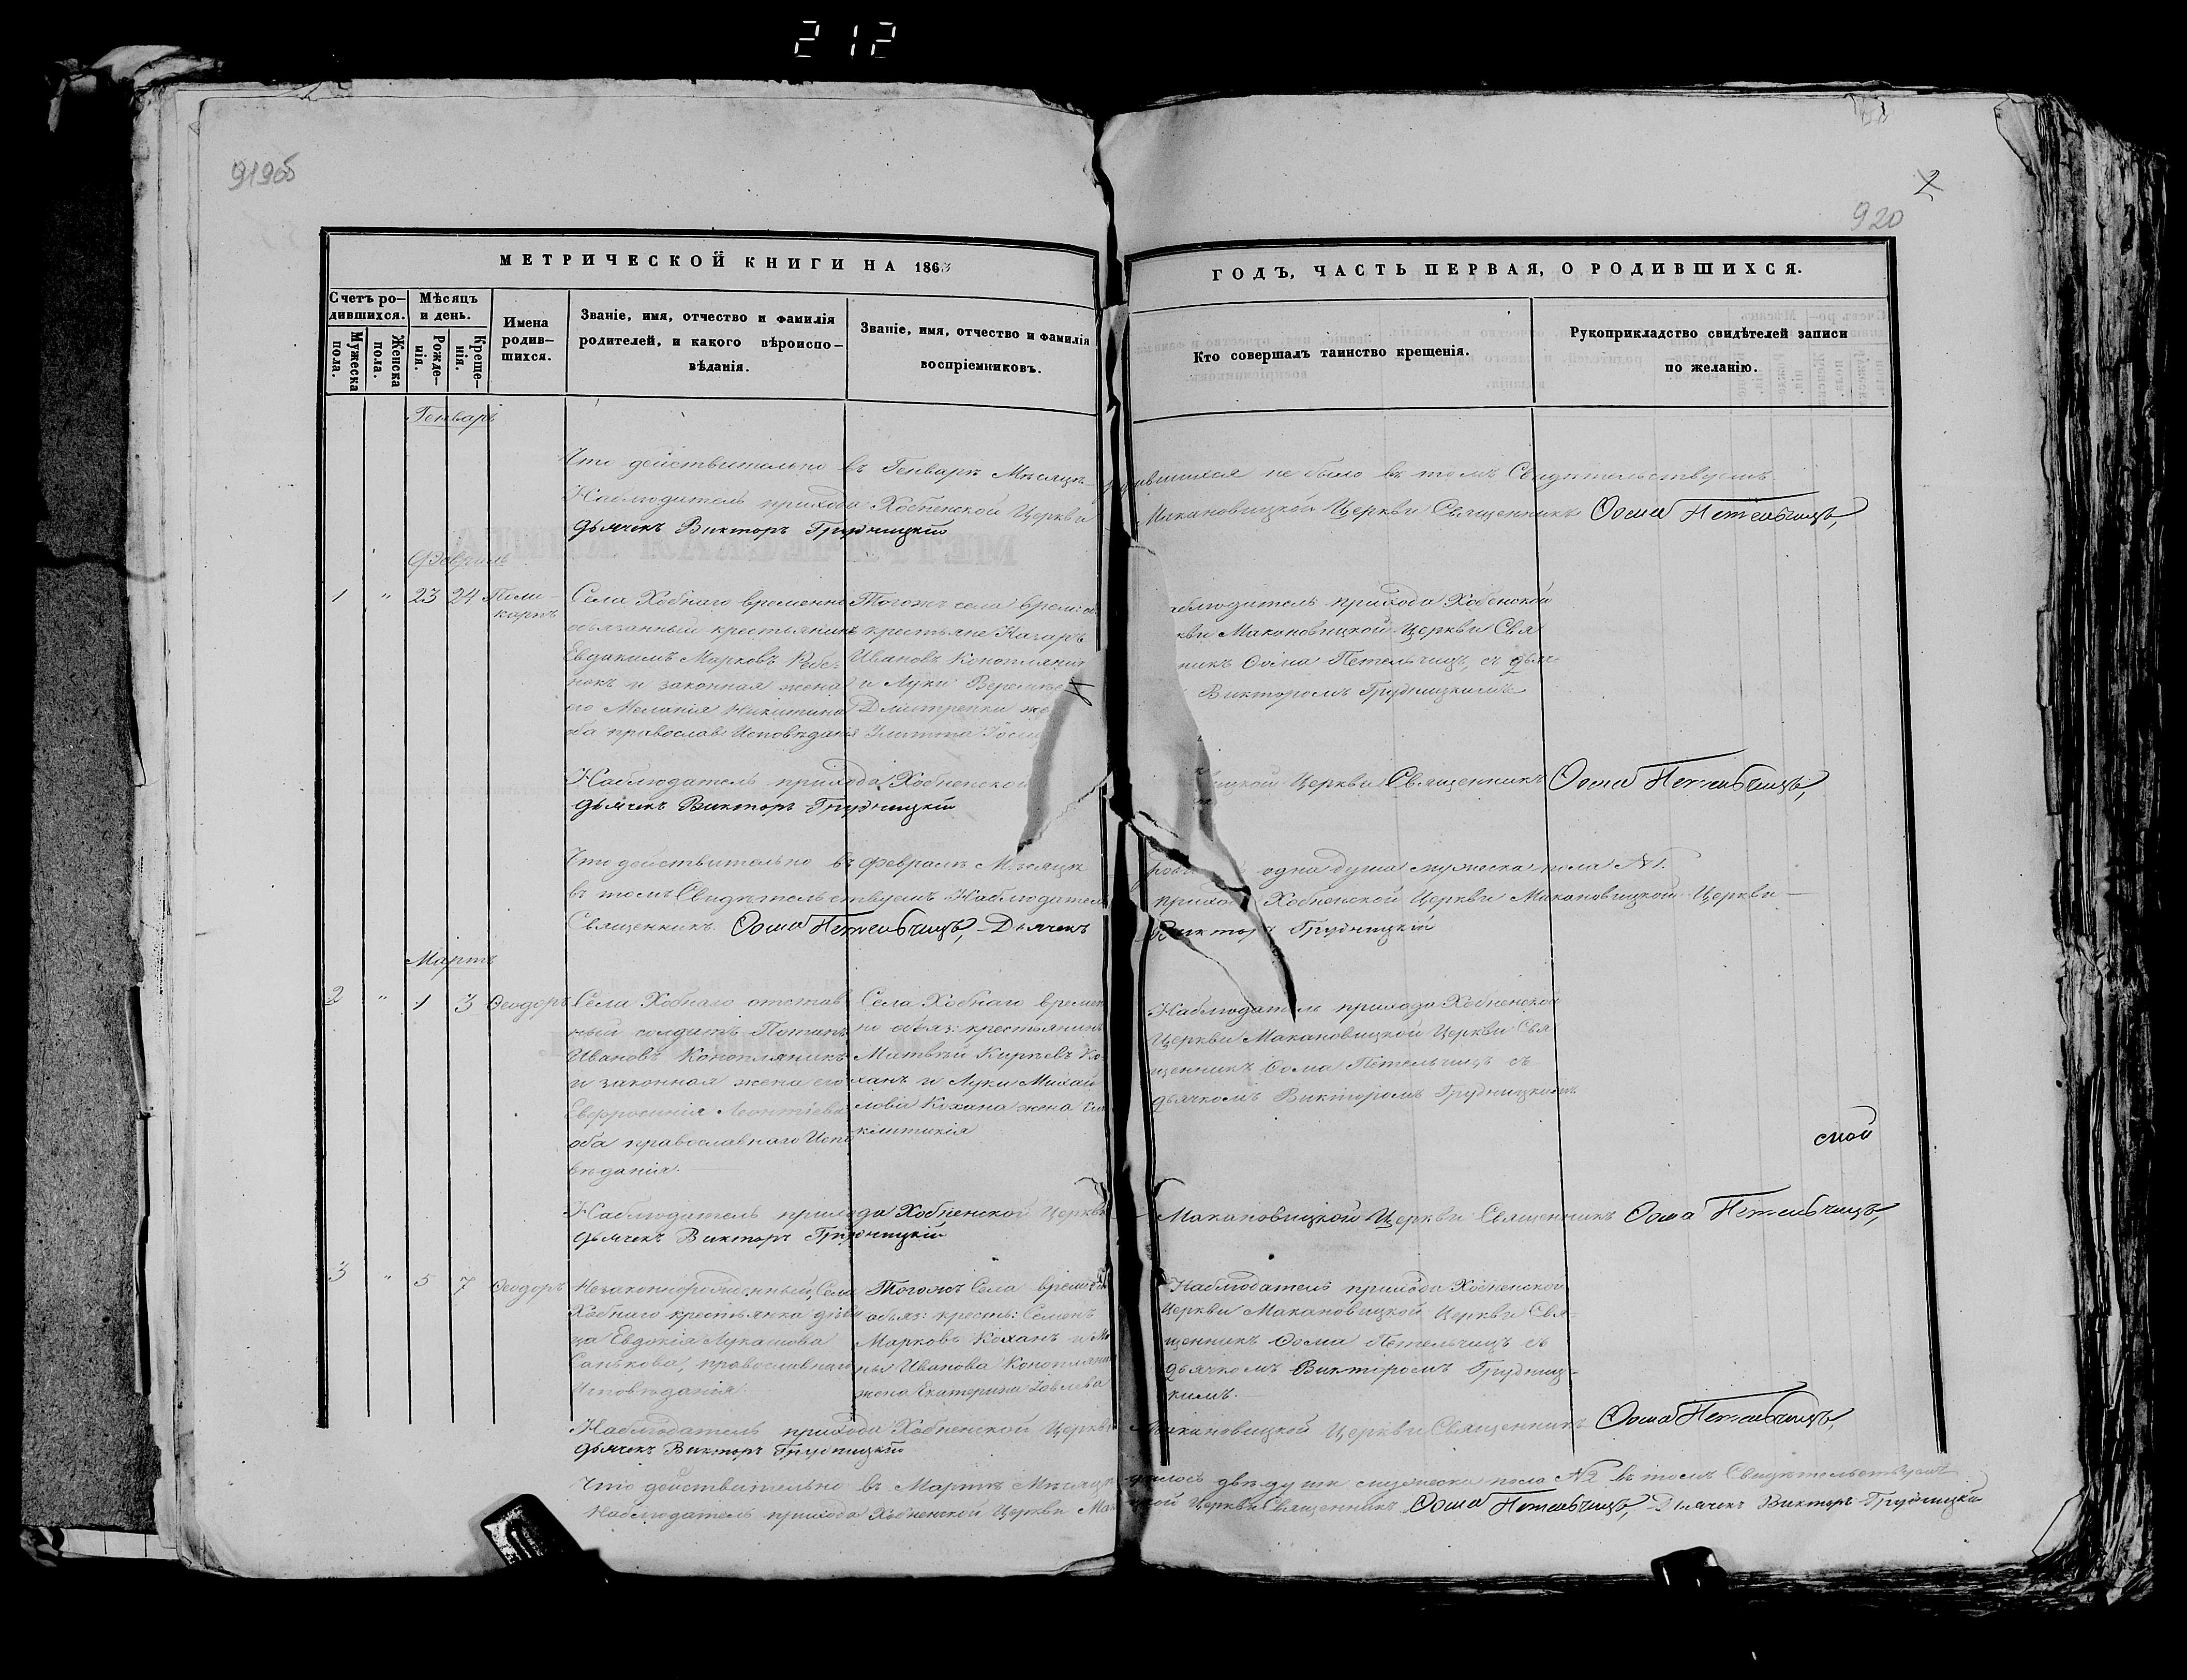 212
919об
2
920
МЕТРИЧЕСКОЙ КНИГИ НА 1863
ГОДЪ, ЧАСТЬ ПЕРВАЯ, О РОДИВШИХСЯ.
Счетъ ро-
дившихся.
Мужеска
пола.
Женска
пола.
Мѣсяцъ
и день.
Рожде-
нія.
Креще-
нія.
Имена
родив-
шихся.
Званіе, имя, отчество и фамилія
родителей, и какого вѣроиспо-
вѣданія.
Званіе, имя, отчество и фамилія
воспріемниковъ.
Кто совершалъ таинство крещенія.
Рукоприкладство свидѣтелей записи
по желанію.
Генварь
Что действительно въ Генваре Мѣсяцѣ родившихся не было въ томъ Свидѣтельствуемъ
Наблюдатель прихода Хобненской Церкви Макановицкой Церкви Священникъ Ѳома Петельчицъ,
Дьячекъ Викторъ Грудницкій
Февраль
1 " 23 24 Поли-
карпъ
Села Хобнаго временно
обязанный крестьянинъ
Евдакимъ Марковъ
нокъ и законная жена
его Меланія Никитина
оба православ: Исповѣданія
Тогожъ села врем: об
крестьяне Назаръ
Ивановъ Конопляник
и Луки
Дмитренки же
Наблюдатель прихода Хобненской
кви Макановицкой Церкви Свя
никъ Ѳома Петельчицъ, съ дьяч
Викторомъ Грудницкимъ
Наблюдатель прихода Хобненской
ицкой Церкви Священникъ Ѳома Петельчицъ,
Дьячекъ Викторъ Грудницкій
Что действительно въ Февралѣ Мѣсяцѣ одна душа мужеска пола №1.
въ томъ Свидѣтельствуемъ Наблюдатель прихода Хобненской Церкви Макановицкой Церкви
Священникъ Ѳома Петельчицъ, Дьячекъ Викторъ Грудницкій
Мартъ
2 " 1 3 Ѳеодоръ
Села Хобнаго отстав
ный солдатъ
Ивановъ Конопляникъ
и законная жена его
Евфросинія Леонтіева
оба православнаго Испо
вѣданія.
Села Хобнаго времен
но обяз: крестьянинъ
Матвѣй Кирѣевъ Ко
ханъ и Луки Михай
лова Кохана жена
клитикія
Наблюдатель прихода Хобненской
Церкви Макановицкой Церкви Свя
щенникъ Ѳома Петельчицъ съ
дьячкомъ Викторомъ Грудницкимъ
Наблюдатель прихода Хобненской Церкви Макановицкой Церкви Священникъ Ѳома Петельчицъ,
Дьячекъ Викторъ Грудницкій
3 " 5 7 Ѳеодоръ
Незаконнорожденный, Села
Хобнаго крестьянка дѣви
ца Евдокія Лукашова
Санькова, православнаго
Исповѣданія
Тогожъ Села времен
обяз: кресть: Семенъ
Марковъ Коханъ и
Иванова Конопляни
жена Екатерина
Наблюдатель прихода Хобненской
Церкви Макановицкой Церкви Свя-
щенникъ Ѳома Петельчицъ съ
дьячкомъ Викторомъ Грудниц-
кимъ.
Наблюдатель прихода Хобненской Церкви Макановицкой Церкви Священникъ Ѳома Петельчицъ,
Дьячекъ Викторъ Грудницкій
Что действительно въ Мартѣ Мѣсяцѣ двѣ души мужеска пола №2 въ томъ Свидѣтельствуемъ
Наблюдатель прихода Хобненской Церкви Церкви Священникъ Ѳома Петельчицъ, Дьячекъ Викторъ Грудницкій